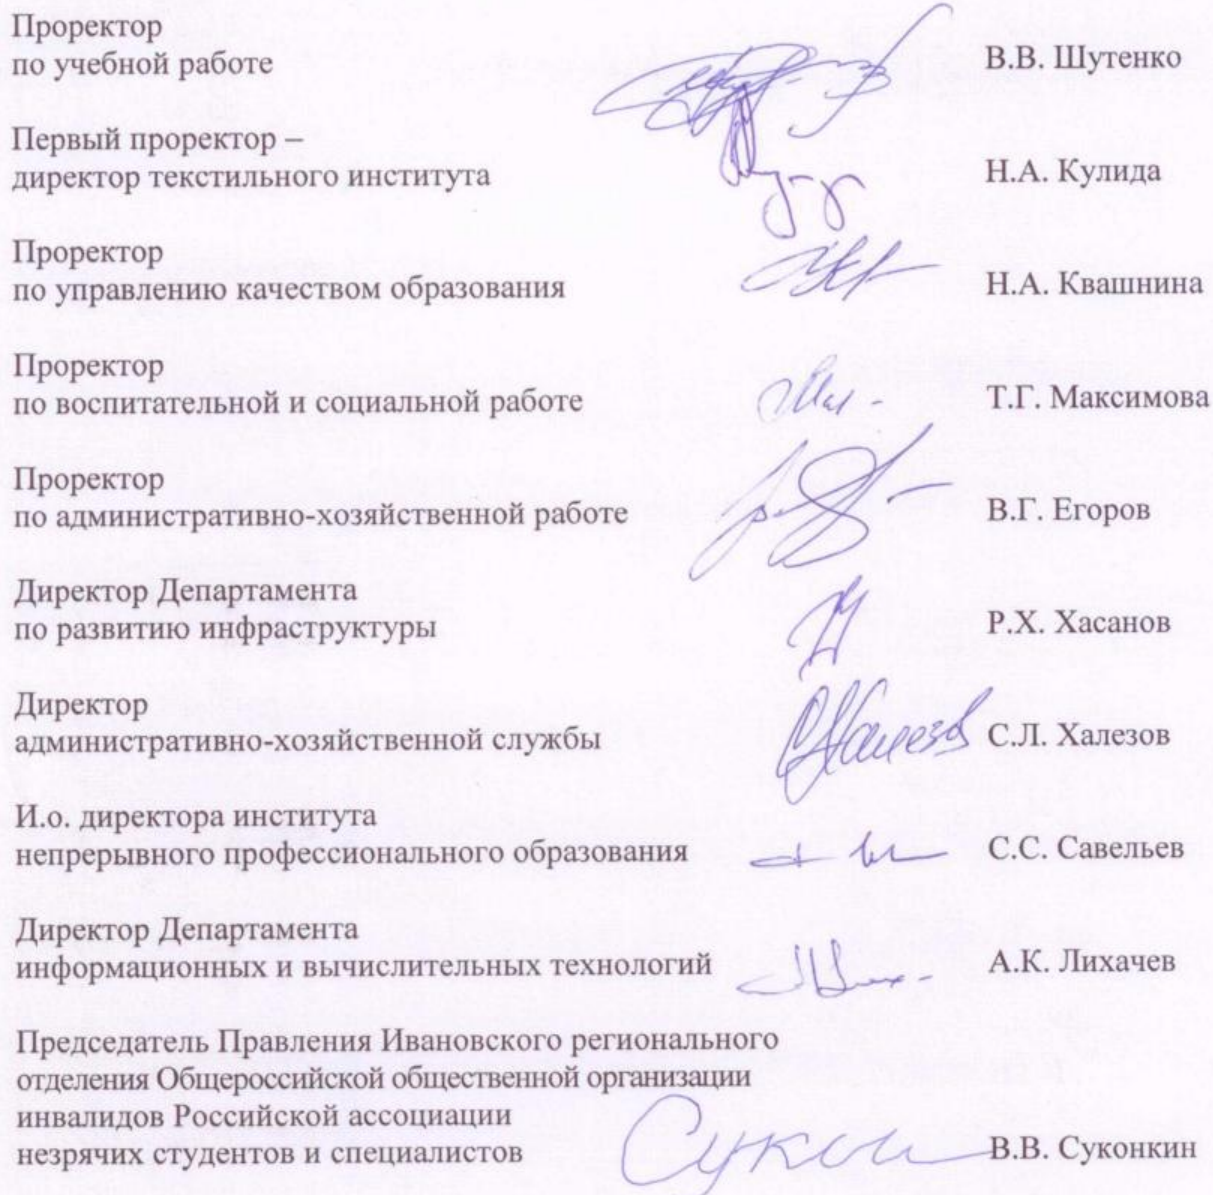 Проректор
по учебной работе В.В. Шутенко
Первый проректор –
директор текстильного института Н.А. Кулида
Проректор
по управлению качеством образования Н.А. Квашнина
Проректор
по воспитательной и социальной работе Т.Г. Максимова
Проректор
по административно-хозяйственной работе В.Г. Егоров
Директор Департамента
по развитию инфраструктуры Р.Х. Хасанов
Директор
административно-хозяйственной службы С.Л. Халезов
И.о. директора института
непрерывного профессионального образования С.С. Савельев
Директор Департамента
информационных и вычислительных технологий А.К. Лихачев
Председатель Правления Ивановского регионального
отделения Общероссийской общественной организации
инвалидов Российской ассоциации
незрячих студентов и специалистов В.В. Суконкин